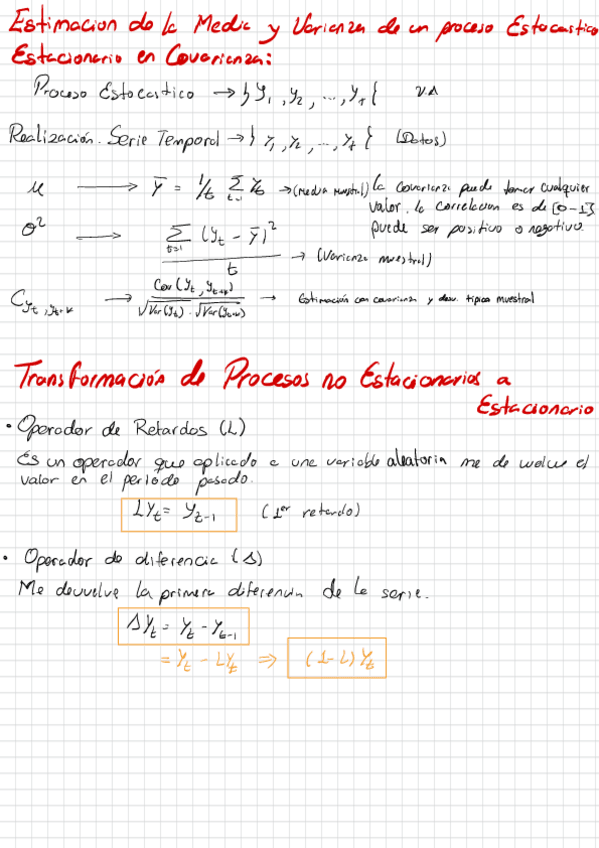 Estimacion de la Media y Varianza de un proceso Estocastico
Estacionario en Covarianza:
Proceso Estocastico → } y₁, y₂, ..., yₜ { V.A
Realización. Serie Temporal → } y₁, y₂, ..., yₜ { (Datos)
μ → ȳ = 1/t Σ yₜ → (media muestral)
la covarianza puede tomar cualquier
valor. la correlacion es de [0-1]
puede ser positivo o negativo.
σ² → Σ (yₜ - ȳ)² / t → (Varianza muestral)
t=1
Cov (yₜ, yₜ₊ₖ) / √Var(yₜ) · √Var(yₜ₊ₖ) → Estimación con covarianza y desv. tipica muestral
Transformación de Procesos no Estacionarios a
Estacionario
• Operador de Retardos (L)
Es un operador que aplicado a una variable aleatoria me devuelve el
valor en el periodo pasado.
Lyₜ = yₜ₋₁ (1er retardo)
• Operador de diferencia (Δ)
Me devuelve la primera diferencia de la serie.
Δyₜ = yₜ - yₜ₋₁
= yₜ - Lyₜ ⇒ (1-L) yₜ